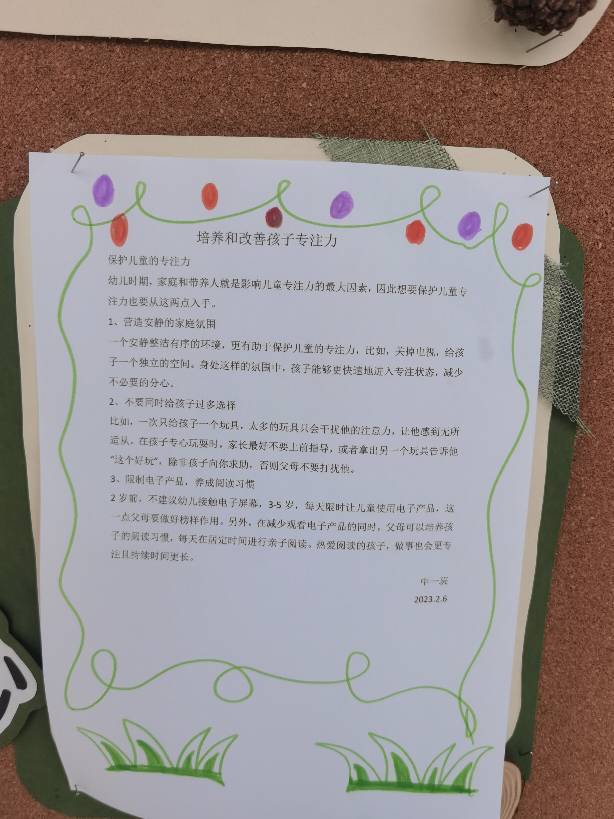 培养和改善孩子专注力
保护儿童的专注力
幼儿时期，家庭和带养人就是影响儿童专注力的最大因素，因此想要保护儿童专
注力也要从这两点入手。
1、营造安静的家庭氛围
一个安静整洁有序的环境，更有助于保护儿童的专注力，比如，关掉电视，给孩
子一个独立的空间。身处这样的氛围中，孩子能够更快速地进入专注状态，减少
不必要的分心。
2、不要同时给孩子过多选择
比如，一次只给孩子一个玩具，太多的玩具只会干扰他的注意力，让他感到无所
适从。在孩子专心玩耍时，家长最好不要上前指导，或者拿出另一个玩具告诉他
“这个好玩”，除非孩子向你求助，否则父母不要打扰他。
3、限制电子产品，养成阅读习惯
2 岁前，不建议幼儿接触电子屏幕，3-5 岁，每天限时让儿童使用电子产品，这
一点父母要做好榜样作用。另外，在减少观看电子产品的同时，父母可以培养孩
子的阅读习惯，每天在固定时间进行亲子阅读。热爱阅读的孩子，做事也会更专
注且持续时间更长。
中一班
2023.2.6